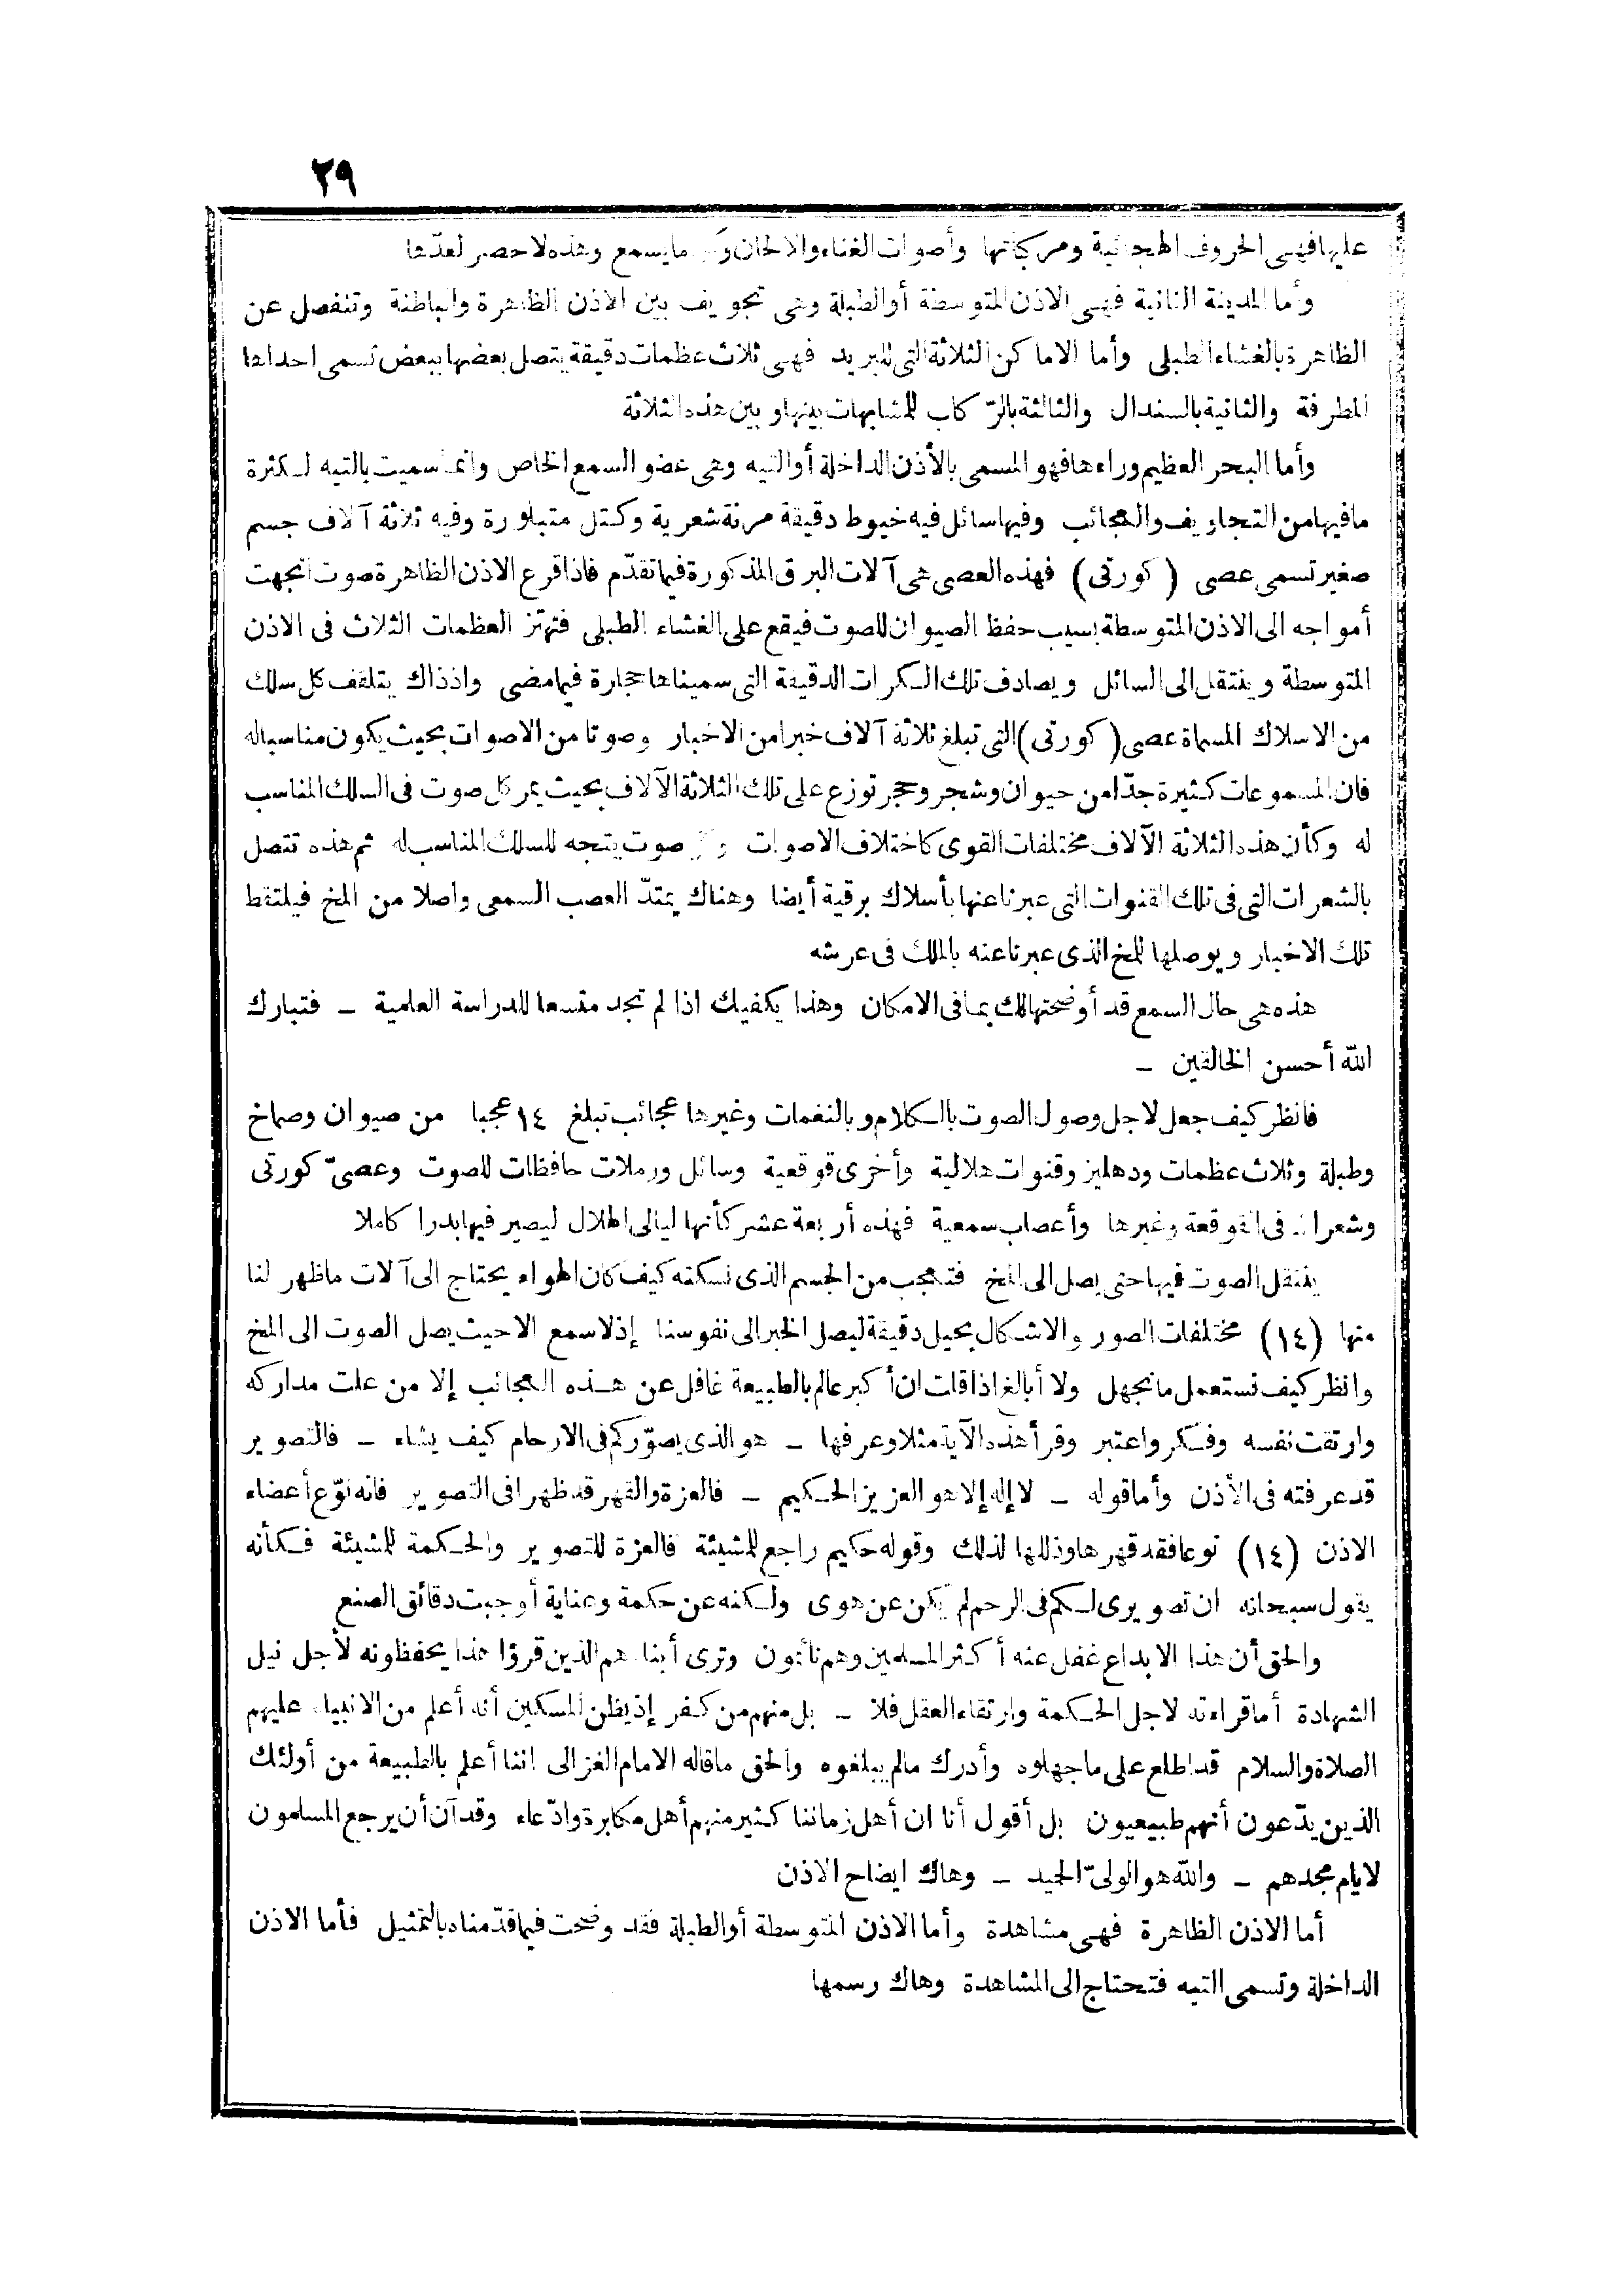 ٢٩
عليها فهى الحروف الهجائية ومركباتها وأصوات الغناء والالحان و ما يسمع وهذه لا حصر لعدّها
وأما المدينة الثانية فهى الاذن المتوسطة أو الطبلة وهى تجويف بين الاذن الظاهرة والباطنة وتنفصل عن
الظاهرة بالغشاء الطبلى وأما الاماكن الثلاثة التى للبريد فهى ثلاث عظمات دقيقة يتصل بعضها ببعض تسمى احداها
المطرقة والثانية بالسندال والثالثة بالرّكاب للمشابهات بينها وبين هذه الثلاثة
وأما البحر العظيم وراءها فهو المسمى بالأذن الداخلة أو التيه وهى عضو السمع الخاص وانما سميت بالتيه لكثرة
ما فيها من التجاويف والعجائب وفيها سائل فيه خيوط دقيقة مرنة شعرية وكتل متبلورة وفيه ثلاثة آلاف جسم
صغير تسمى عصى (كورتى) فهذه العصى هى آلات البرق المذكورة فيما تقدّم فاذا قرع الاذن الظاهرة صوت اتجهت
أمواجه الى الاذن المتوسطة بسبب حفظ الصيوان للصوت فيقع على الغشاء الطبلى فتهتز العظمات الثلاث فى الاذن
المتوسطة وينتقل الى السائل ويصادف تلك الكرات الدقيقة التى سميناها حجارة فيما مضى واذ ذاك يتلقف كل سلك
من الاسلاك المسماة عصى (كورتى) التى تبلغ ثلاثة آلاف خبرا من الاخبار وصوتا من الاصوات بحيث يكون مناسبا له
فان المسموعات كثيرة جدّا من حيوان وشجر وحجر توزع على تلك الثلاثة الآلاف بحيث يمر كل صوت فى السلك المناسب
له وكأن هذه الثلاثة الآلاف مختلفات القوى كاختلاف الاصوات صوت يتجه للسلك المناسب له ثم هذه تتصل
بالشعرات التى فى تلك القنوات التى عبرنا عنها بأسلاك برقية أيضا وهناك يمتدّ العصب السمعى واصلا من المخ فيلتقط
تلك الاخبار ويوصلها للمخ الذى عبرنا عنه بالملك فى عرشه
هذه هى حال السمع قد أوضحتها لك بما فى الامكان وهذا يكفيك اذا لم تجد متسعا للدراسة العلمية ـ فتبارك
الله أحسن الخالقين ـ
فانظر كيف جعل لاجل وصول الصوت بالكلام وبالنغمات وغيرها عجائب تبلغ ١٤ عجبا من صيوان وصماخ
وطبلة وثلاث عظمات ودهليز وقنوات هلالية وأخرى قوقعية وسائل ورملات حافظات للصوت وعصىّ كورتى
وشعرات فى القوقعة وغيرها وأعصاب سمعية فهذه أربعة عشر كأنها ليالى الهلال ليصير فيها بدرا كاملا
ينتقل الصوت فيها حتى يصل الى المخ فتعجب من الجسم الذى نسكنه كيف كان الهواء يحتاج الى آلات ما ظهر لنا
منها (١٤) مختلفات الصور والاشكال بحيل دقيقة ليصل الخبر الى نفوسنا إذ لا سمع الا حيث يصل الصوت الى المخ
وانظر كيف نستعمل ما نجهل ولا أبالغ اذا قلت ان أكبر عالم بالطبيعة غافل عن هذه العجائب إلا من علت مداركه
وارتقت نفسه وفكر واعتبر وقرأ هذه الآية مثلا وعرفها ـ هو الذى يصوّركم فى الارحام كيف يشاء ـ فالتصوير
قد عرفته فى الأذن وأما قوله ـ لا إله إلا هو العزيز الحكيم ـ فالعزة والقهر قد ظهرا فى التصوير فانه نوّع أعضاء
الاذن (١٤) نوعا فقد قهرها وذللها لذلك وقوله حكيم راجع للمشيئة فالعزة للتصوير والحكمة للمشيئة فكأنه
يقول سبحانه ان تصويرى لكم فى الرحم لم يكن عن هوى ولكنه عن حكمة وعناية أوجبت دقائق الصنع
والحق أن هذا الابداع غفل عنه أكثر المسلمين وهم نائمون وترى أبناءهم الذين قرؤا هذا يحفظونه لأجل نيل
الشهادة أما قراءته لاجل الحكمة وارتقاء العقل فلا ـ بل منهم من كفر إذ يظن المسكين أنه أعلم من الانبياء عليهم
الصلاة والسلام قد اطلع على ما جهلوه وأدرك ما لم يبلغوه والحق ما قاله الامام الغزالى اننا أعلم بالطبيعة من أولئك
الذين يدّعون أنهم طبيعيون بل أقول أنا ان أهل زماننا كثير منهم أهل مكابرة وادّعاء وقد آن أن يرجع المسلمون
لايام مجدهم ـ والله هو الولىّ الحميد ـ وهاك ايضاح الاذن
أما الاذن الظاهرة فهى مشاهدة وأما الاذن المتوسطة أو الطبلة فقد وضحت فيما قدّمناه بالتمثيل فأما الاذن
الداخلة وتسمى التيه فتحتاج الى المشاهدة وهاك رسمها